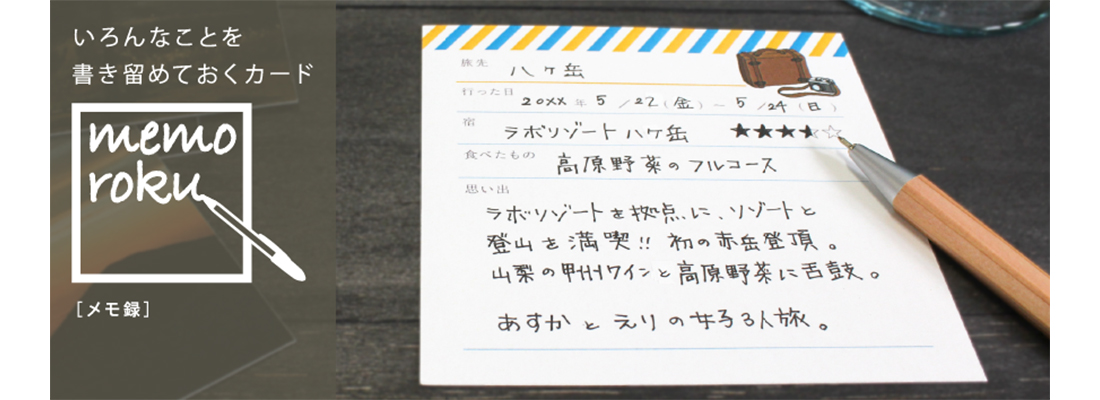 いろんなことを
書き留めておくカード
memo
roku
［メモ録］
旅先 八ヶ岳
行った日 20XX 年 5 / 22 (金) ～ 5 / 24 (日)
宿 ラボリゾート八ヶ岳 ★★★⯪☆
食べたもの 高原野菜のフルコース
思い出
ラボリゾートを拠点に、リゾートと
登山を満喫!! 初の赤岳登頂。
山梨の甲州ワインと高原野菜に舌鼓。
あすかとえりの女子3人旅。